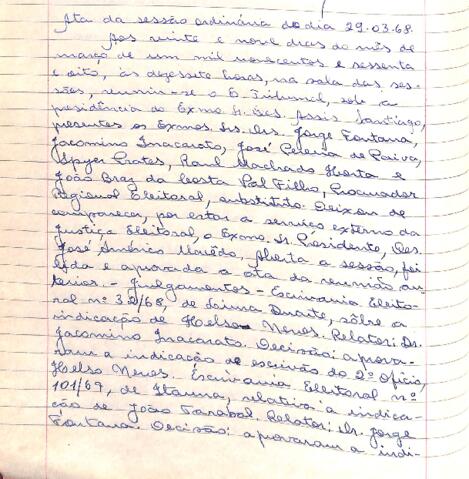 Ata da sessão ordinária do dia 29.03.68.
Aos vinte e nove dias do mês de
março de um mil novecentos e sessenta
e oito, às dezessete horas, na sala das ses-
sões, reuniu-se o E. Tribunal, sob a
presidência do Exmo. Sr. Des. Assis Santiago,
presentes os Exmos. Srs. Drs. Jorge Fontana,
Jacomino Inacarato, José Pereira de Paiva,
Spyer Prates, Raul Machado Horta e
João Braz da Costa Val Filho, Procurador
Regional Eleitoral, substituto. Deixou de
comparecer, por estar a serviço externo da
Justiça Eleitoral, o Exmo. Sr. Presidente, Des.
José Américo Macêdo. Aberta a sessão, foi
lida e aprovada a ata da reunião an-
terior. - Julgamentos - Escrivania Eleito-
ral nº 32/68, de Lima Duarte, sôbre a
indicação de Helso Neves. Relator: Dr.
Jacomino Inacarato. Decisão: aprova-
ram a indicação de escrivão do 2º Ofício,
Helso Neves. Escrivania Eleitoral nº
101/67, de Itauna, relativa à indica-
ção de João Tarabal. Relator: Dr. Jorge
Fontana. Decisão: aprovaram a indi-